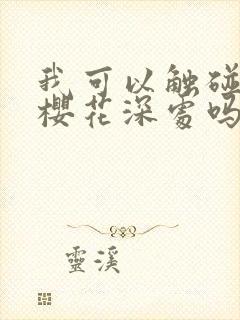 我可以触碰
樱花深处吗
靈溪